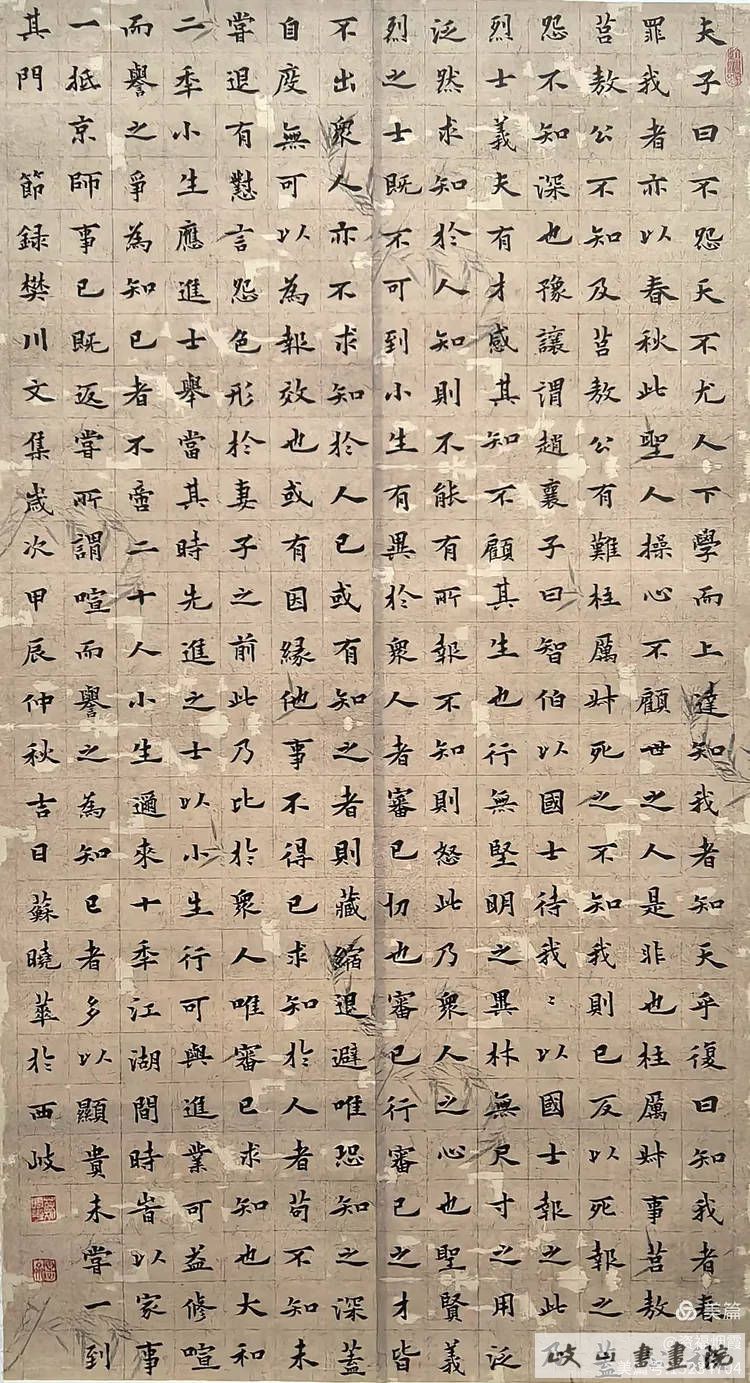 夫子曰不怨天不尤人下學而上達知我者知天乎復曰知我者春
罪我者亦以春秋此聖人操心不顧世之人是非也柱厲叔事莒敖
莒敖公不知及莒敖公有難柱厲叔死之不知我則已反以死報之蓋
怨不知深也豫讓謂趙襄子曰智伯以國士待我〻以國士報之此
烈士義夫有才感其知不顧其生也行無堅明之異材無尺寸之用泛
泛然求知於人知則不能有所報不知則怒此乃衆人之心也聖賢義
烈之士既不可到小生有異於衆人者審已切也審已行審已之才皆
不出衆人亦不求知於人已或有知之者則藏縮退避唯恐知之深蓋
自度無可以為報效也或有因緣他事不得已求知於人者苟不知未
嘗退有懟言怨色形於妻子之前此乃比於衆人唯審已求知也大和
二秊小生應進士舉當其時先進之士以小生行可與進業可益修喧
而譽之爭為知已者不啻二十人小生邇來十秊江湖間時旹以家事
一抵京師事已既返嘗所謂喧而譽之為知已者多以顯貴未嘗一到
其門 節録樊川文集歲次甲辰仲秋吉日蘇曉華於西岐
美篇
岐山書畫院